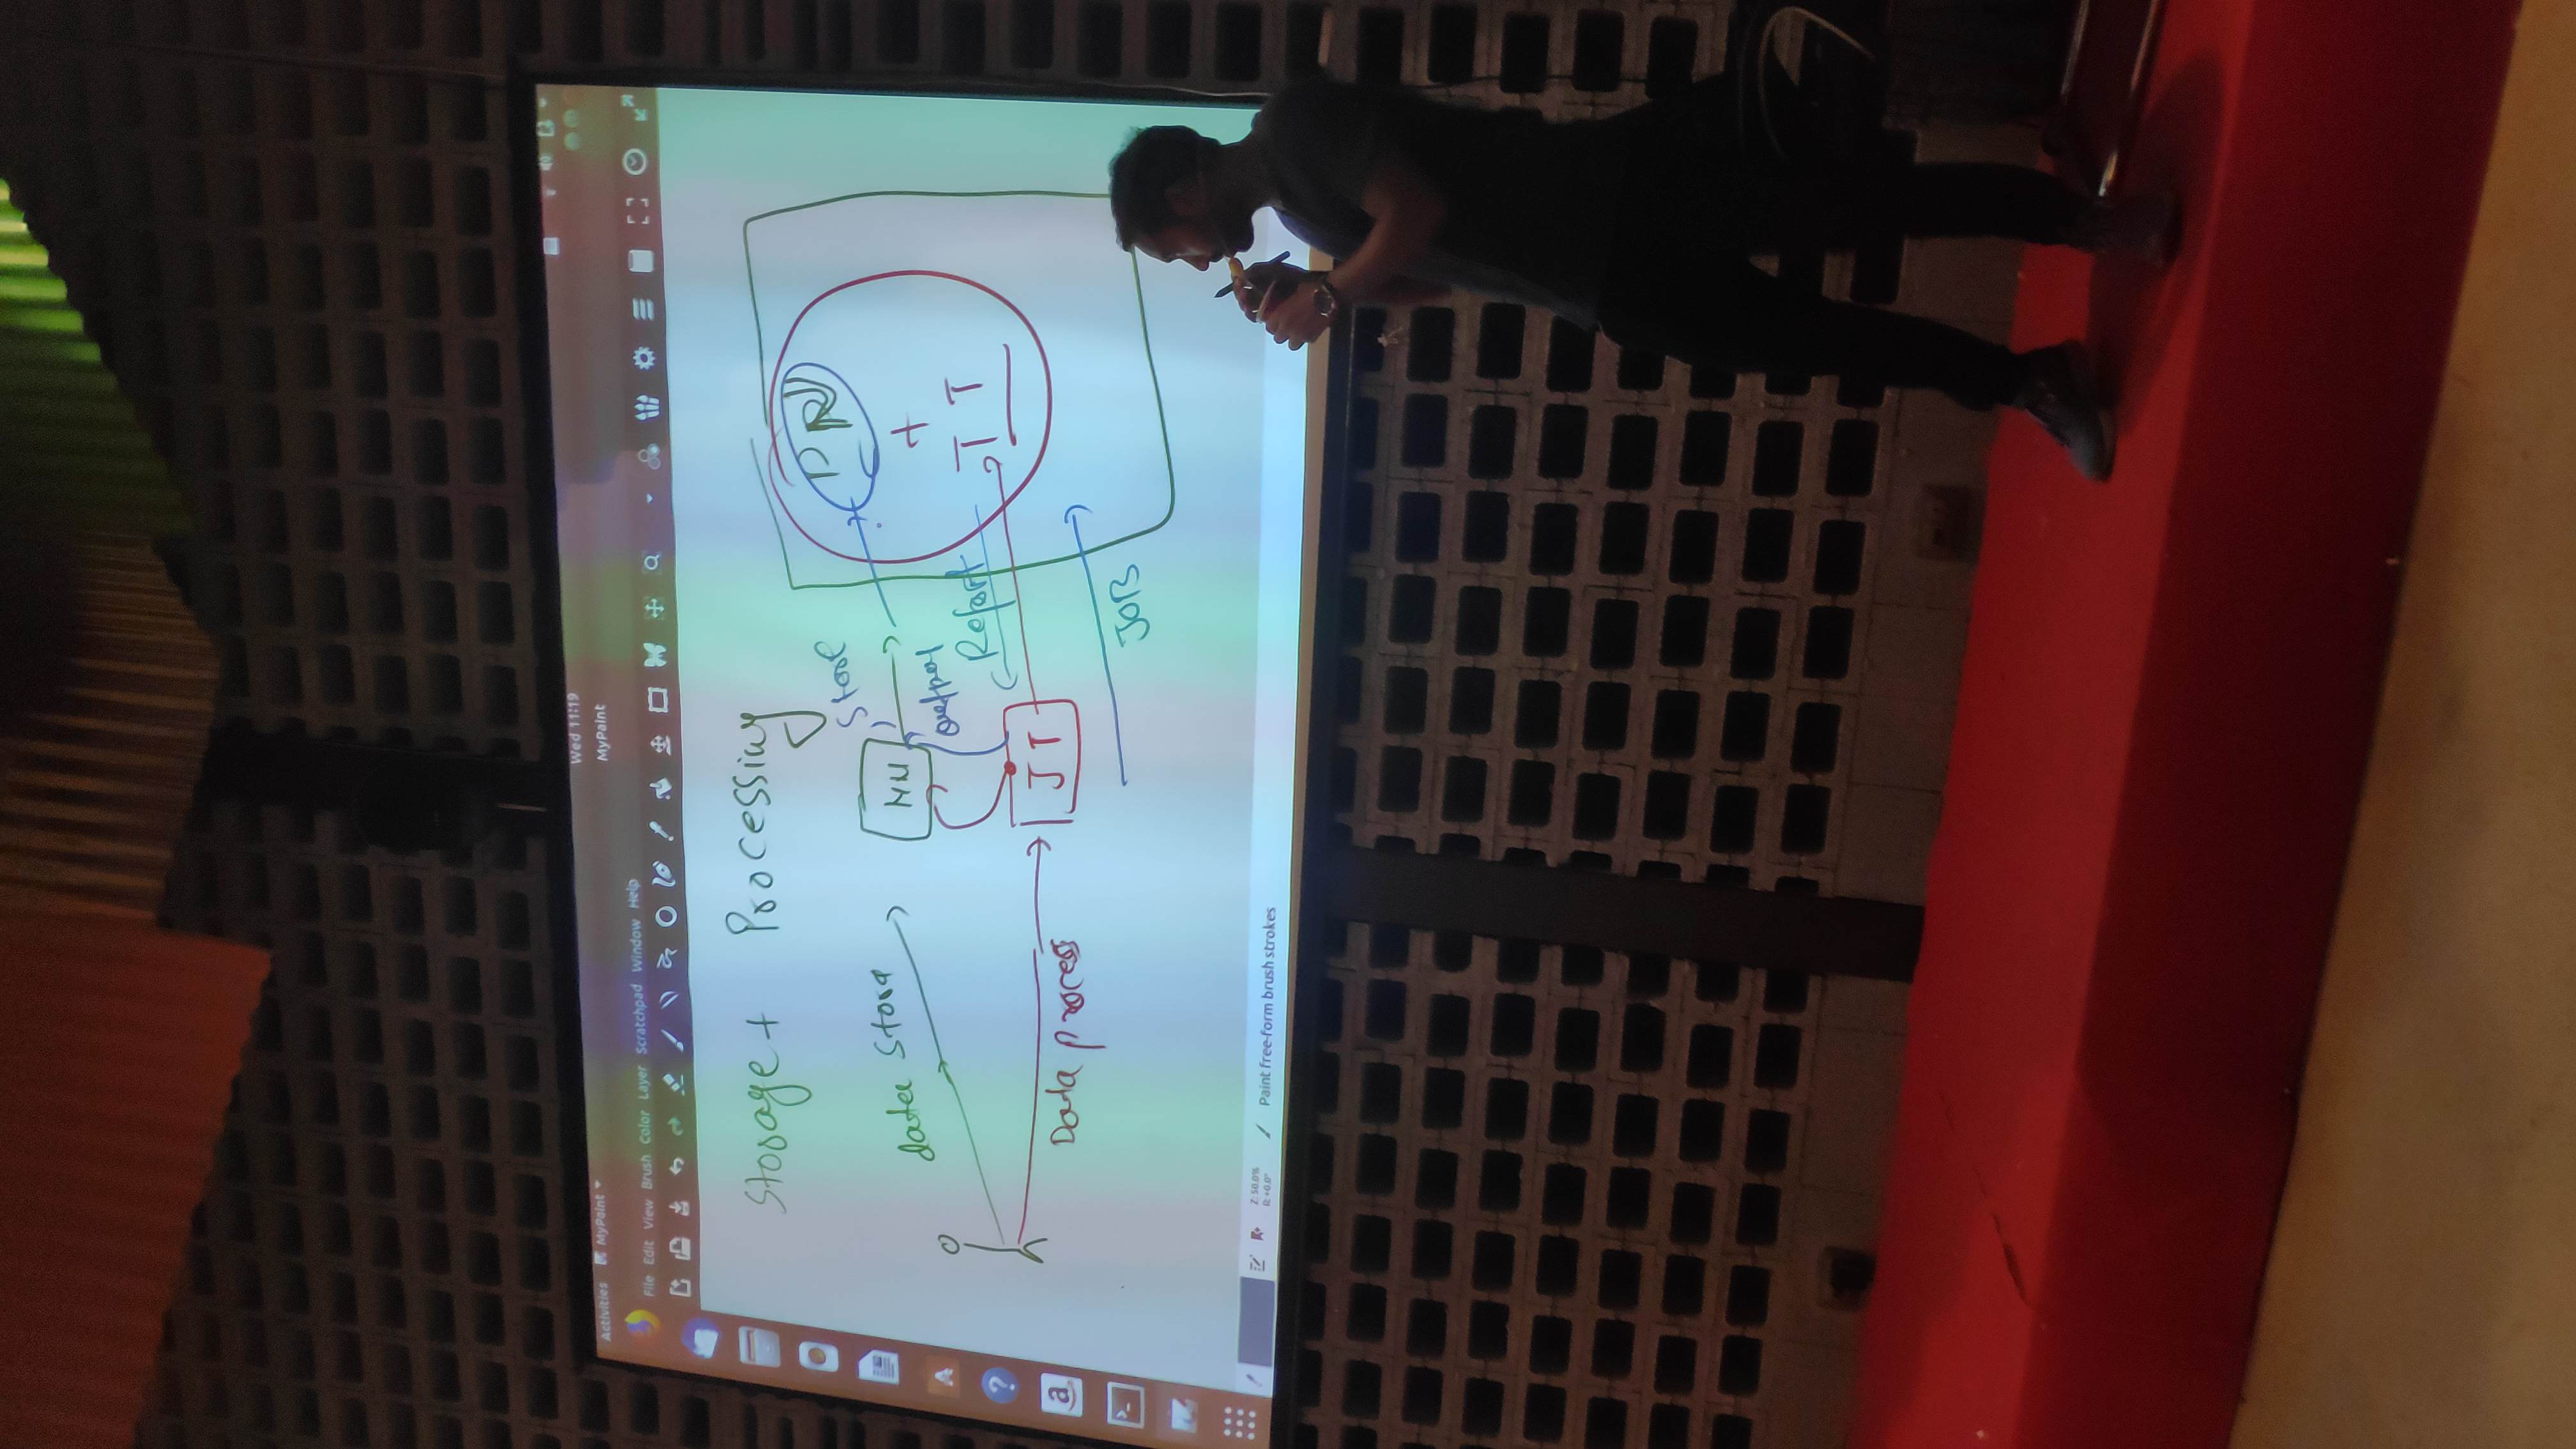 Wed 11:19
Activities MyPaint
MyPaint
File Edit View Brush Color Layer Scratchpad Window Help
Storage + Processing
DN
Store
data Store
NN
+
output
Report
TT
JT
Data process
JOB
Z: 50.0%
R: +0.0°
Paint free-form brush strokes
A
?
a
>_